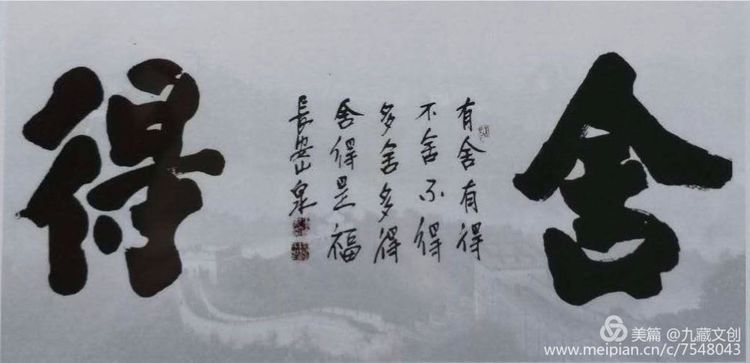 舍
有舍有得
不舍不得
多舍多得
舍得是福
長安山泉
得
美篇 @九藏文创
www.meipian.cn/c/7548043